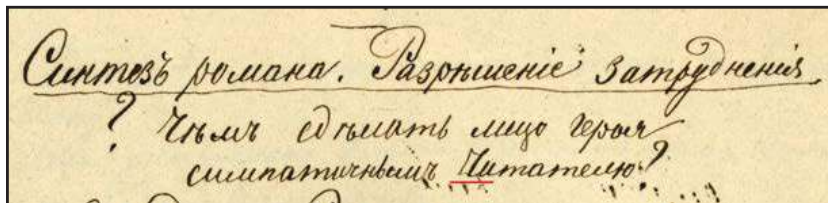 Синтезъ романа. Разрѣшеніе затрудненія
? Чѣмъ сдѣлать лицо героя
симпатичнымъ Читателю?